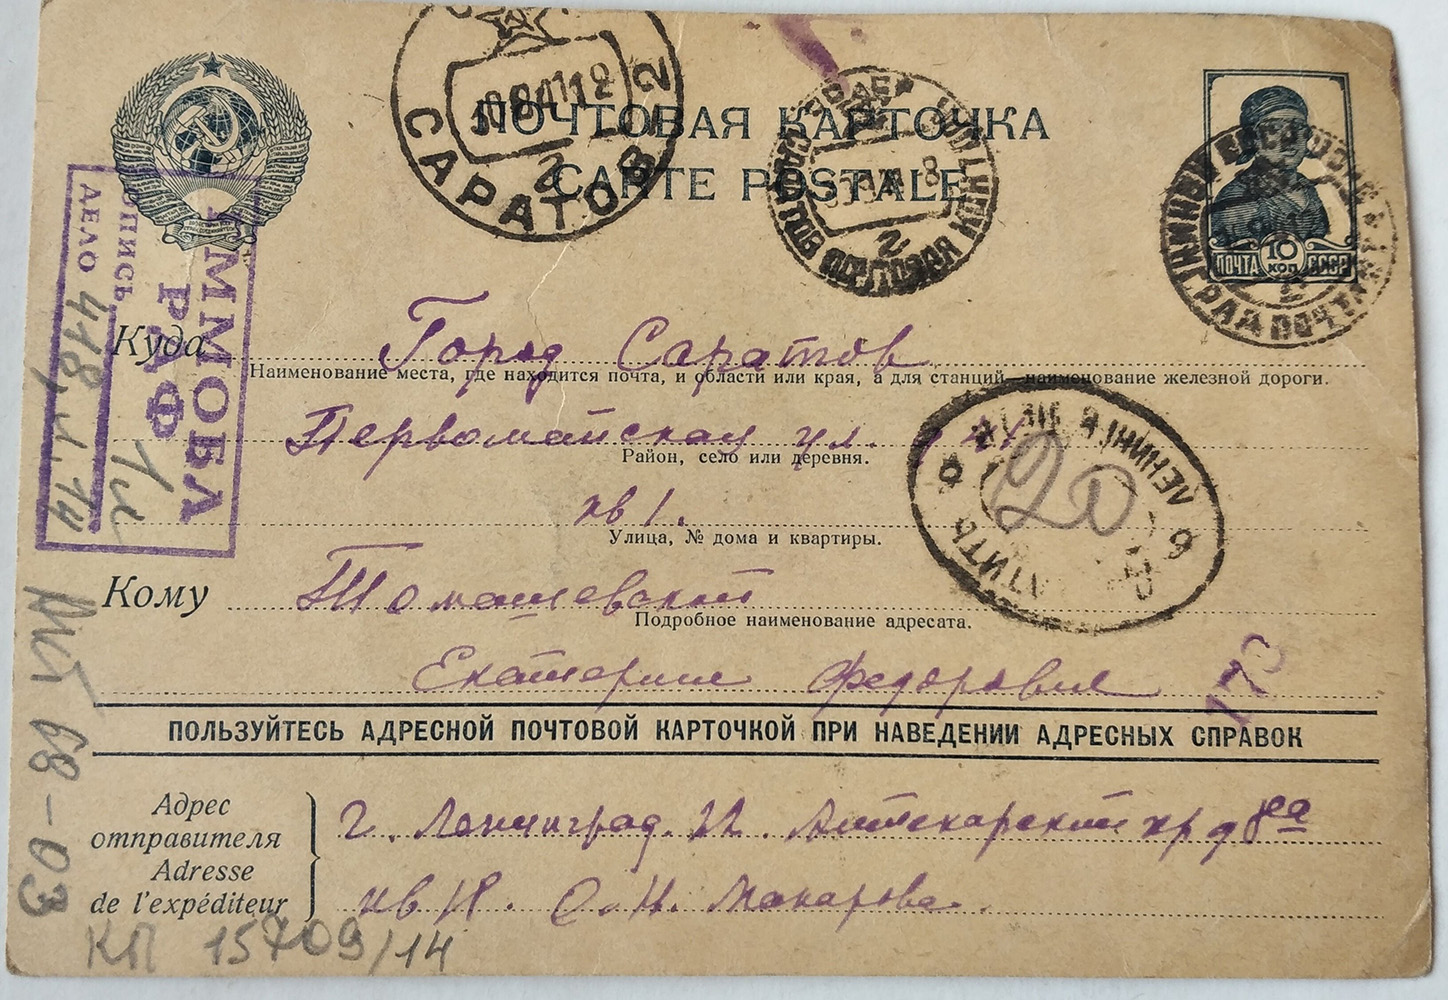 ПОЧТОВАЯ КАРТОЧКА
CARTE POSTALE
САРАТОВ
2
ПОЧТА 10 КОП СССР
ГММОБА
РАФ
ОПИСЬ
ДЕЛО 418,
Куда Город Саратов
Наименование места, где находится почта, и области или края, а для станций—наименование железной дороги.
Первомайская ул.
Район, село или деревня.
кв 1.
Улица, № дома и квартиры.
20
Кому Томашевской
Подробное наименование адресата.
Екатерине Федоровне
ПОЛЬЗУЙТЕСЬ АДРЕСНОЙ ПОЧТОВОЙ КАРТОЧКОЙ ПРИ НАВЕДЕНИИ АДРЕСНЫХ СПРАВОК
Адрес
отправителя
Adresse
de l'expéditeur
г. Ленинград. 22. Аптекарский пр д 8а
кв О. Н. Макарова.
68-03
КП 15709/14